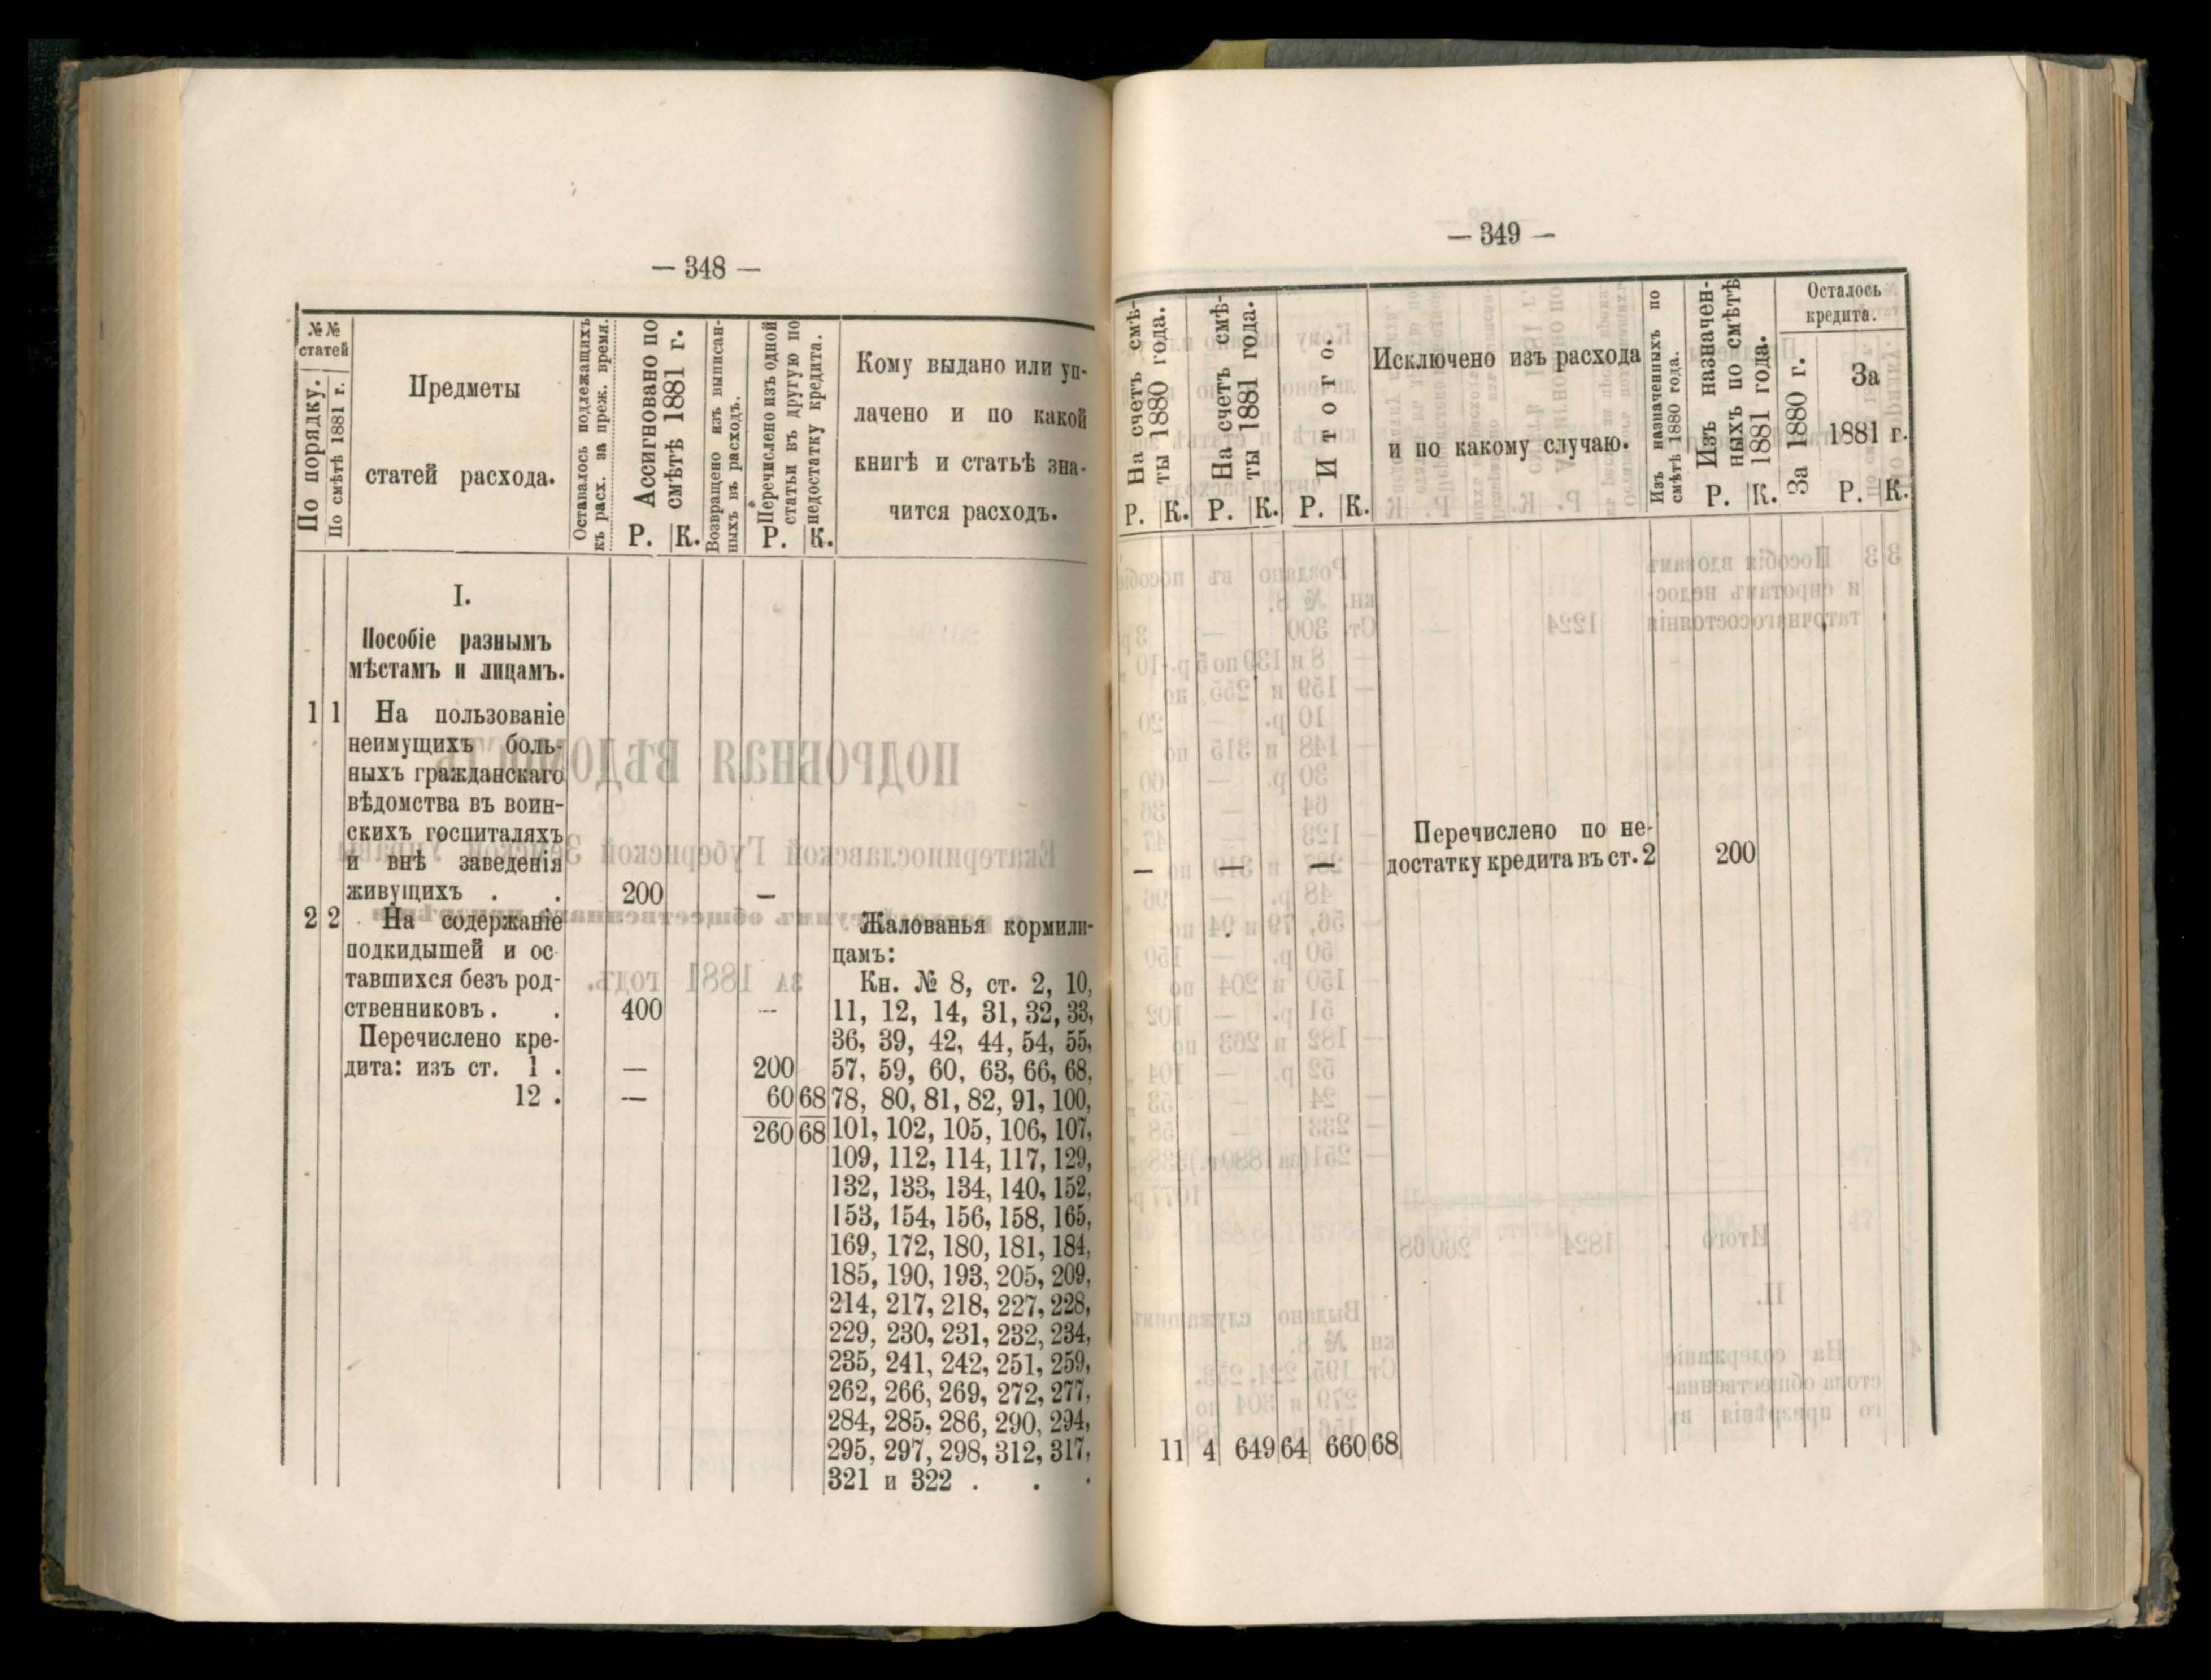 — 348 —
№№ статей
По порядку.
По смѣтѣ 1881 г.
Предметы
статей расхода.
Оставалось подлежащихъ
къ расх. за преж. время.
Ассигновано по
смѣтѣ 1881 г.
Р. К.
Возвращено изъ выписан-
ныхъ въ расходъ.
Перечислено изъ одной
статьи въ другую по
недостатку кредита.
Р. К.
Кому выдано или уп-
лачено и по какой
книгѣ и статьѣ зна-
чится расходъ.
I.
Пособіе разнымъ
мѣстамъ и лицамъ.
1 1 На пользованіе
неимущихъ боль-
ныхъ гражданскаго
вѣдомства въ воин-
скихъ госпиталяхъ
и внѣ заведенія
живущихъ . . 200 —
2 2 На содержаніе
подкидышей и ос-
тавшихся безъ род-
ственниковъ . . 400 —
Перечислено кре-
дита: изъ ст. 1 . — 200
12 . — 60 68
260 68
Жалованья кормили-
цамъ:
Кн. № 8, ст. 2, 10,
11, 12, 14, 31, 32, 33,
36, 39, 42, 44, 54, 55,
57, 59, 60, 63, 66, 68,
78, 80, 81, 82, 91, 100,
101, 102, 105, 106, 107,
109, 112, 114, 117, 129,
132, 133, 134, 140, 152,
153, 154, 156, 158, 165,
169, 172, 180, 181, 184,
185, 190, 193, 205, 209,
214, 217, 218, 227, 228,
229, 230, 231, 232, 234,
235, 241, 242, 251, 259,
262, 266, 269, 272, 277,
284, 285, 286, 290, 294,
295, 297, 298, 312, 317,
321 и 322 . . .
— 349 —
На счетъ смѣ-
ты 1880 года.
Р. К.
На счетъ смѣ-
ты 1881 года.
Р. К.
Итого.
Р. К.
Исключено изъ расхода
и по какому случаю.
Изъ назначенныхъ по
смѣтѣ 1880 года.
Изъ назначен-
ныхъ по смѣтѣ
1881 года.
Р. К.
Осталось
кредита.
За 1880 г.
За
1881 г.
Р. К.
Перечислено по не-
— — — достатку кредита въ ст. 2 200
11 4 649 64 660 68